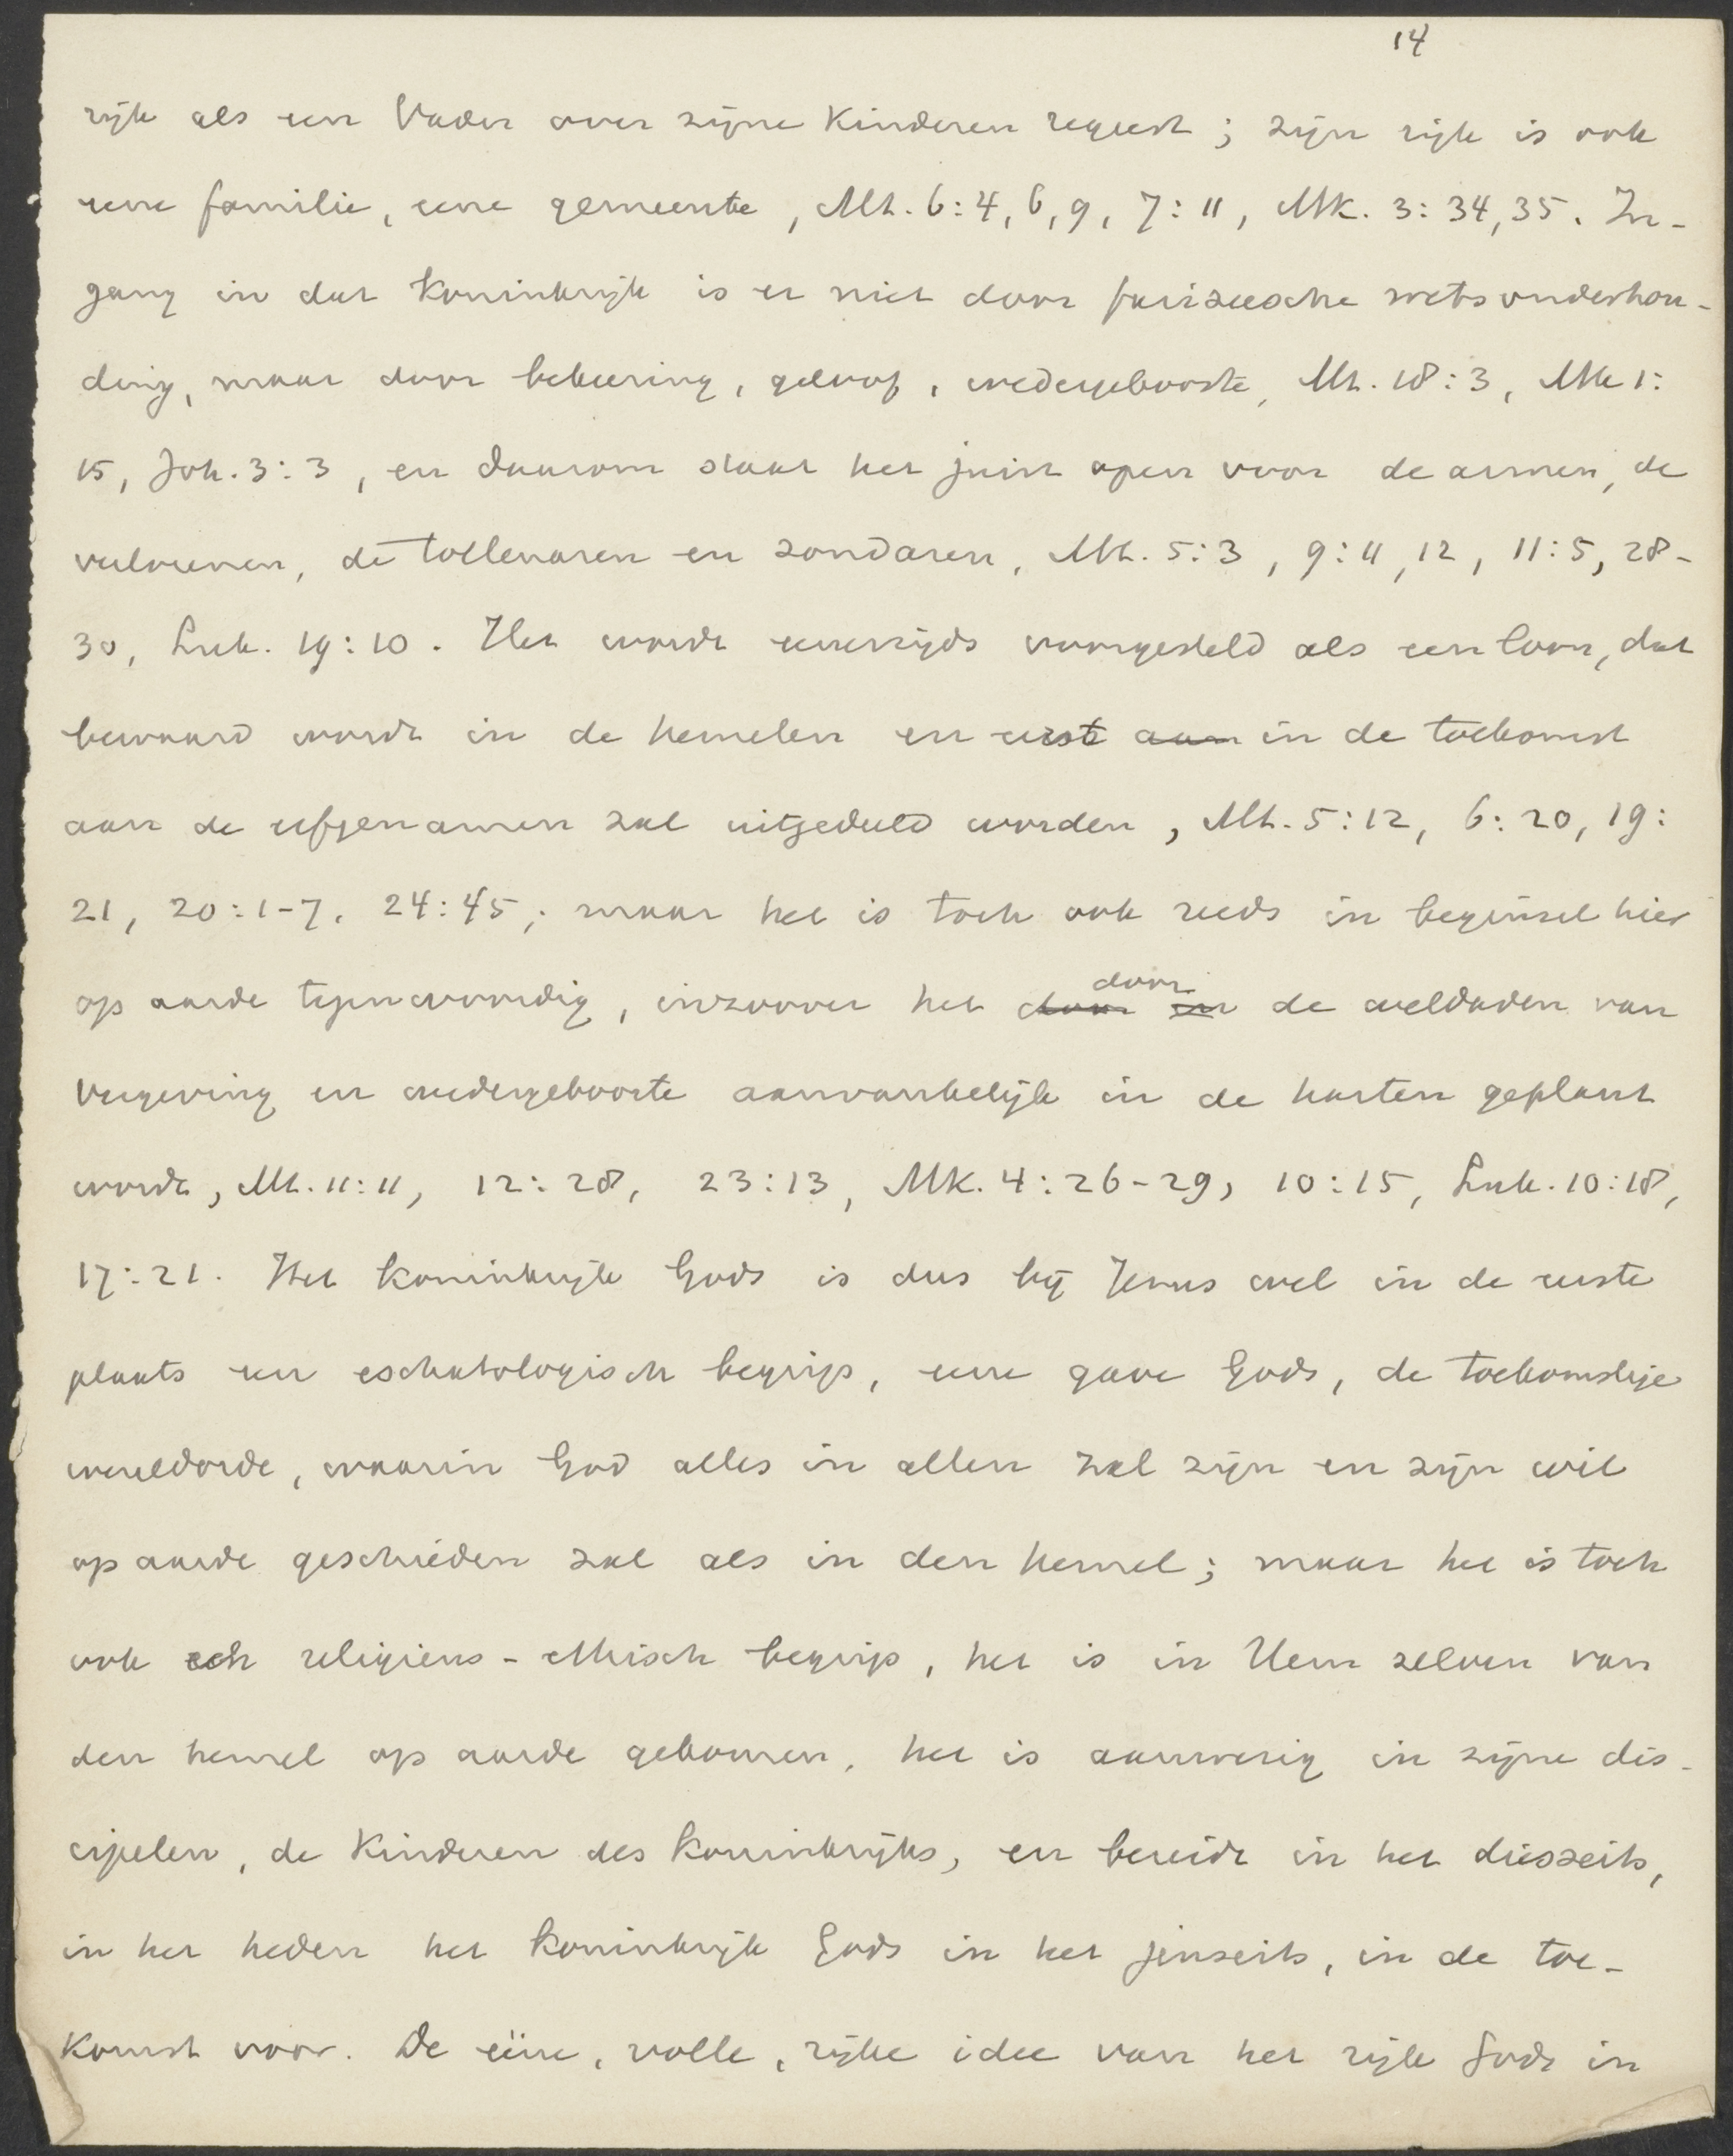 14
rijk als een Vader over zijne kinderen regeert; zijn rijk is ook
eene familie, eene gemeente, Mt. 6:4, 6, 9, 7:11, Mk. 3:34, 35. In-
gang in dat koninkrijk is er niet door farizeesche wetsonderhou-
ding, maar door bekeering, geloof, wedergeboorte, Mt. 18:3, Mk 1:
15, Joh. 3:3, en daarom staat het juist open voor de armen, de
verlorenen, de tollenaren en zondaren, Mt. 5:3, 9:11, 12, 11:5, 28-
30, Luk. 19:10. Het wordt eenerzijds voorgesteld als een loon, dat
bewaard wordt in de hemelen en eerst aan in de toekomst
aan de erfgenamen zal uitgedeeld worden, Mt. 5:12, 6:20, 19:
21, 20:1-7, 24:45; maar het is toch ook reeds in beginsel hier
op aarde tegenwoordig, inzoover het door en door de weldaden van
vergeving en wedergeboorte aanvankelijk in de harten geplant
wordt, Mt. 11:11, 12:28, 23:13, Mk. 4:26-29, 10:15, Luk. 10:18,
17:21. Het koninkrijk Gods is dus bij Jezus wel in de eerste
plaats een eschatologisch begrip, eene gave Gods, de toekomstige
wereldorde, waarin God alles in allen zal zijn en zijn wil
op aarde geschieden zal als in den hemel; maar het is toch
ook een religieus-ethisch begrip, het is in Hem zelven van
den hemel op aarde gekomen, het is aanwezig in zijne dis-
cipelen, de kinderen des koninkrijks, en bereidt in het diesseits,
in het heden het koninkrijk Gods in het jenseits, in de toe-
komst voor. De ééne, volle, rijke idee van het rijk Gods in